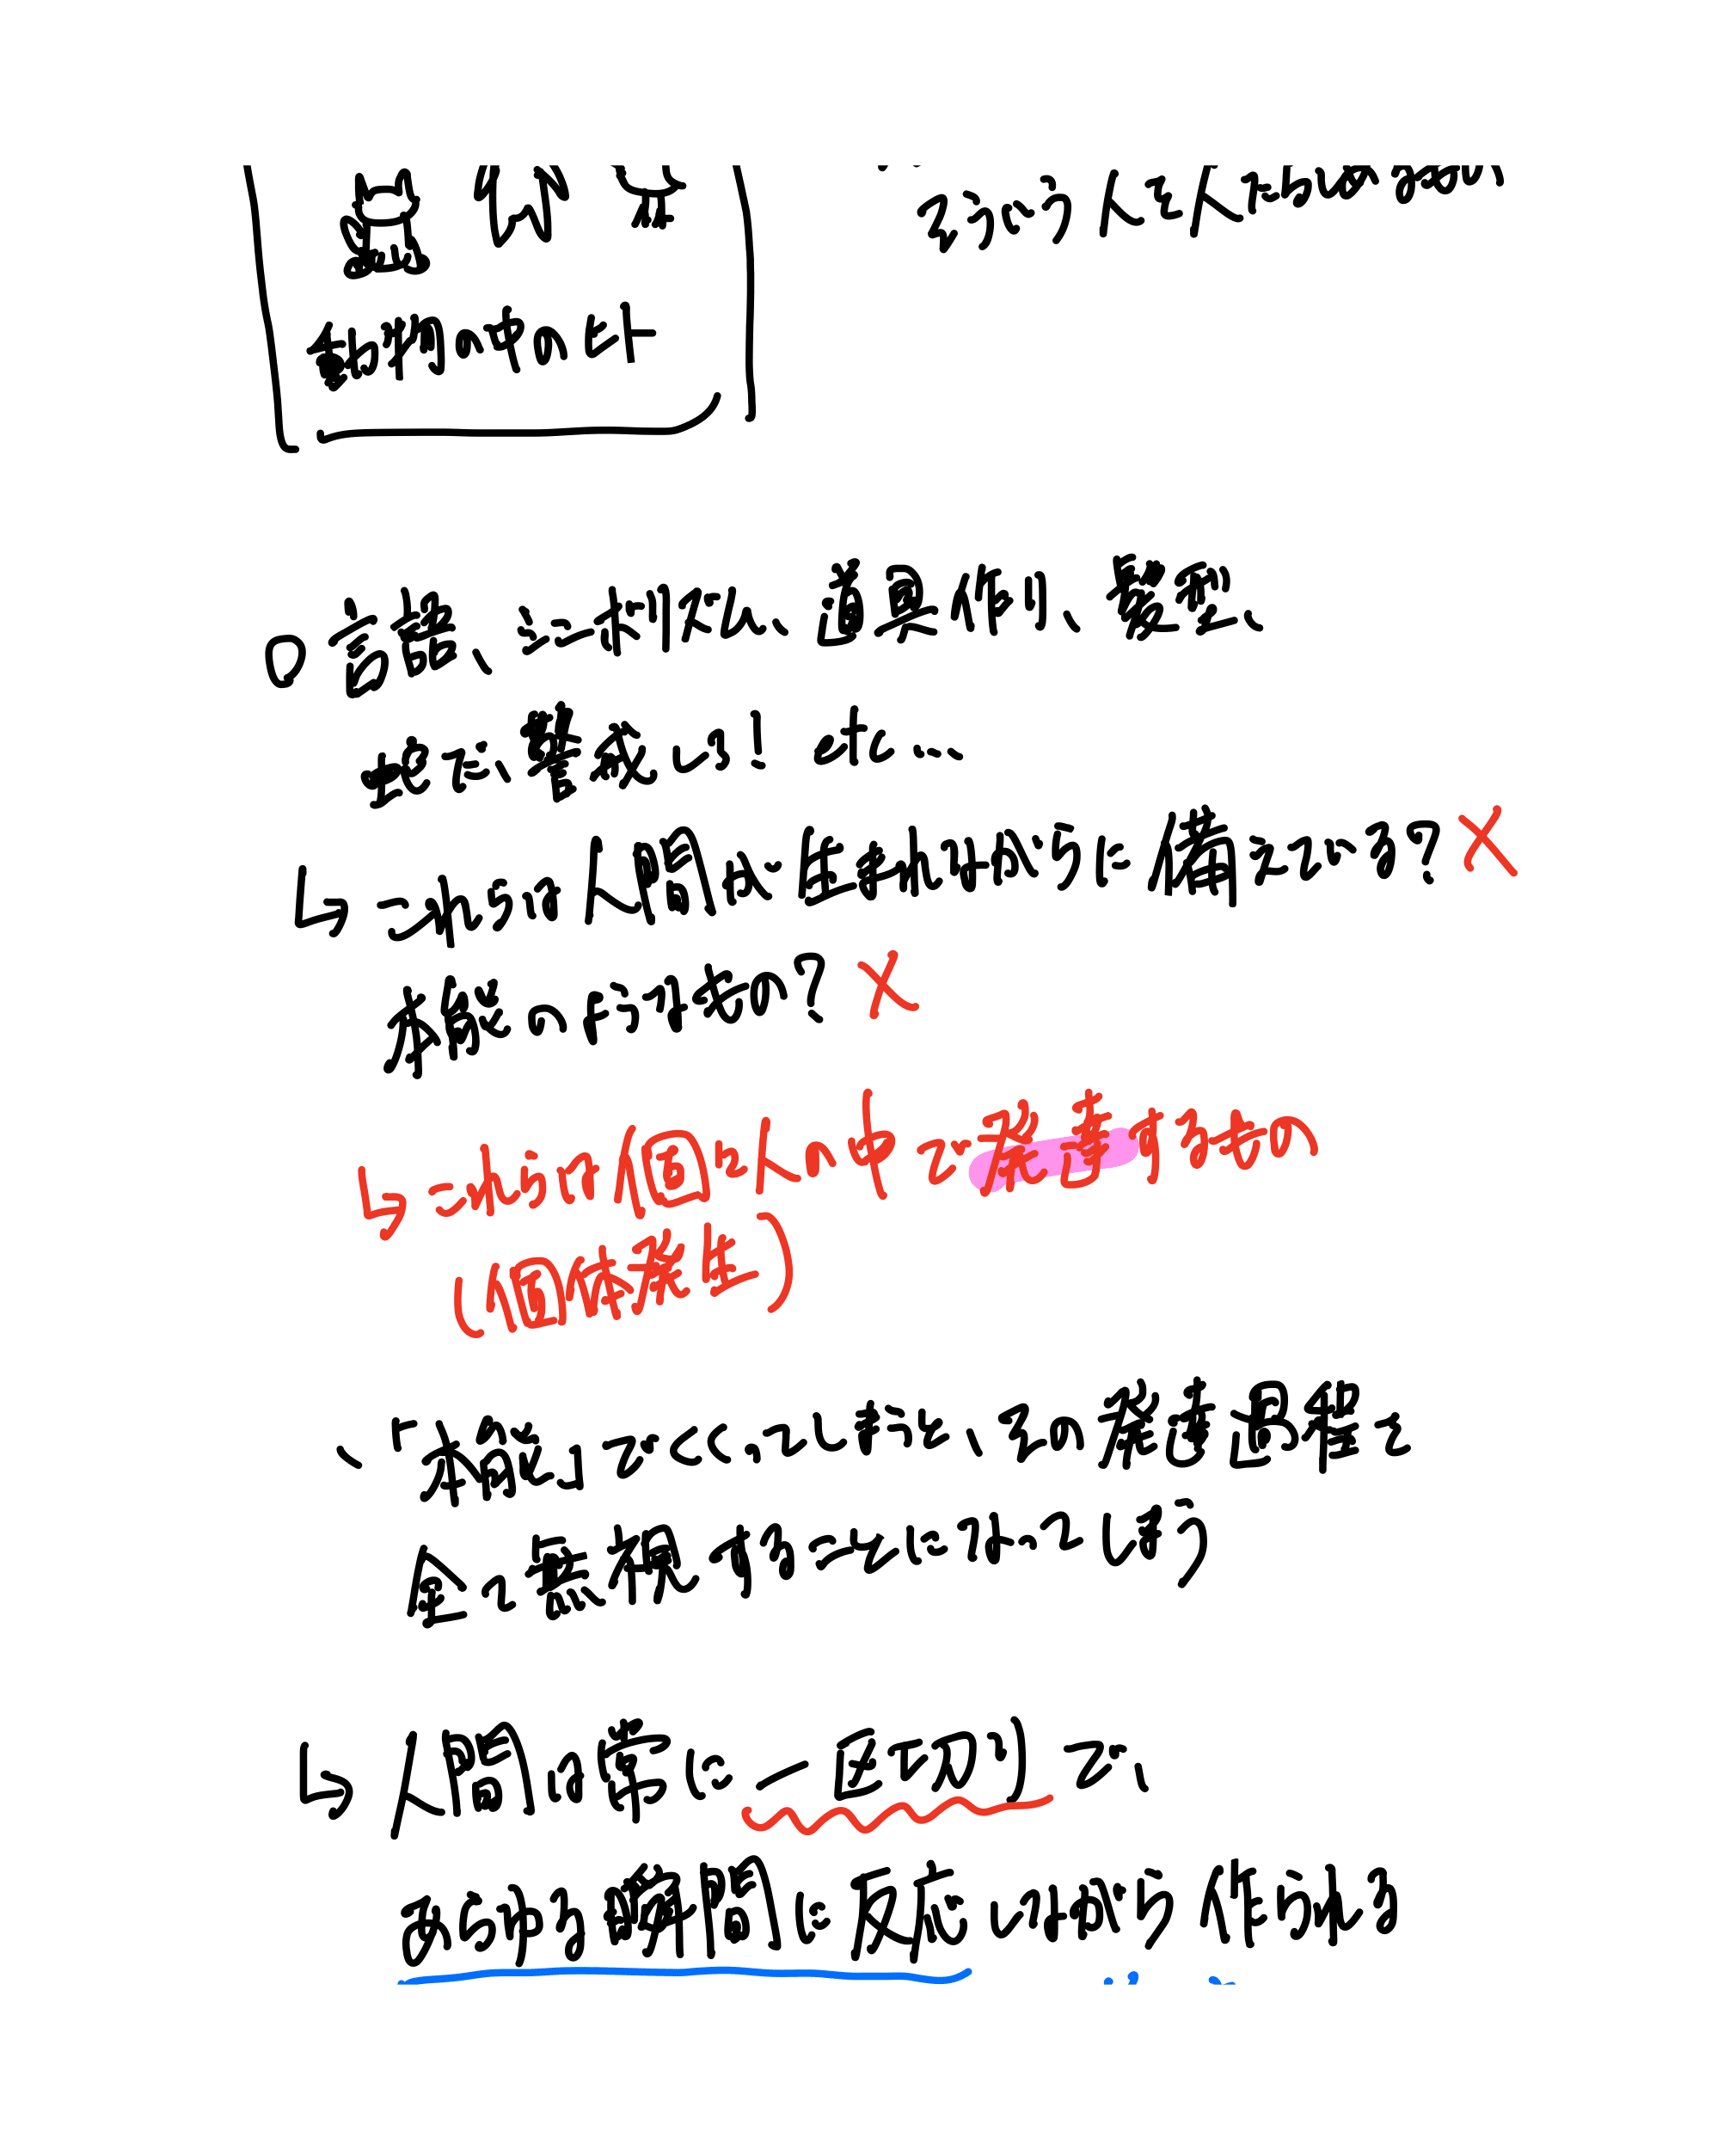 そういう人と人
動物の中のヒト
○ 言語、二足歩行、道具作り、髪型、
まで、繁栄した! でも...
↳ これらは人間が生まれながらに備えている? ×
本能のようなもの? ×
↳ これらは個々人の中で発達するもの
(個体発生)
、「本能」でくくってしまうと、その発達過程を
全て無視することになってしまう
↳ 人間は常に一区切りで、
あらゆる瞬間に反応しながら作られる